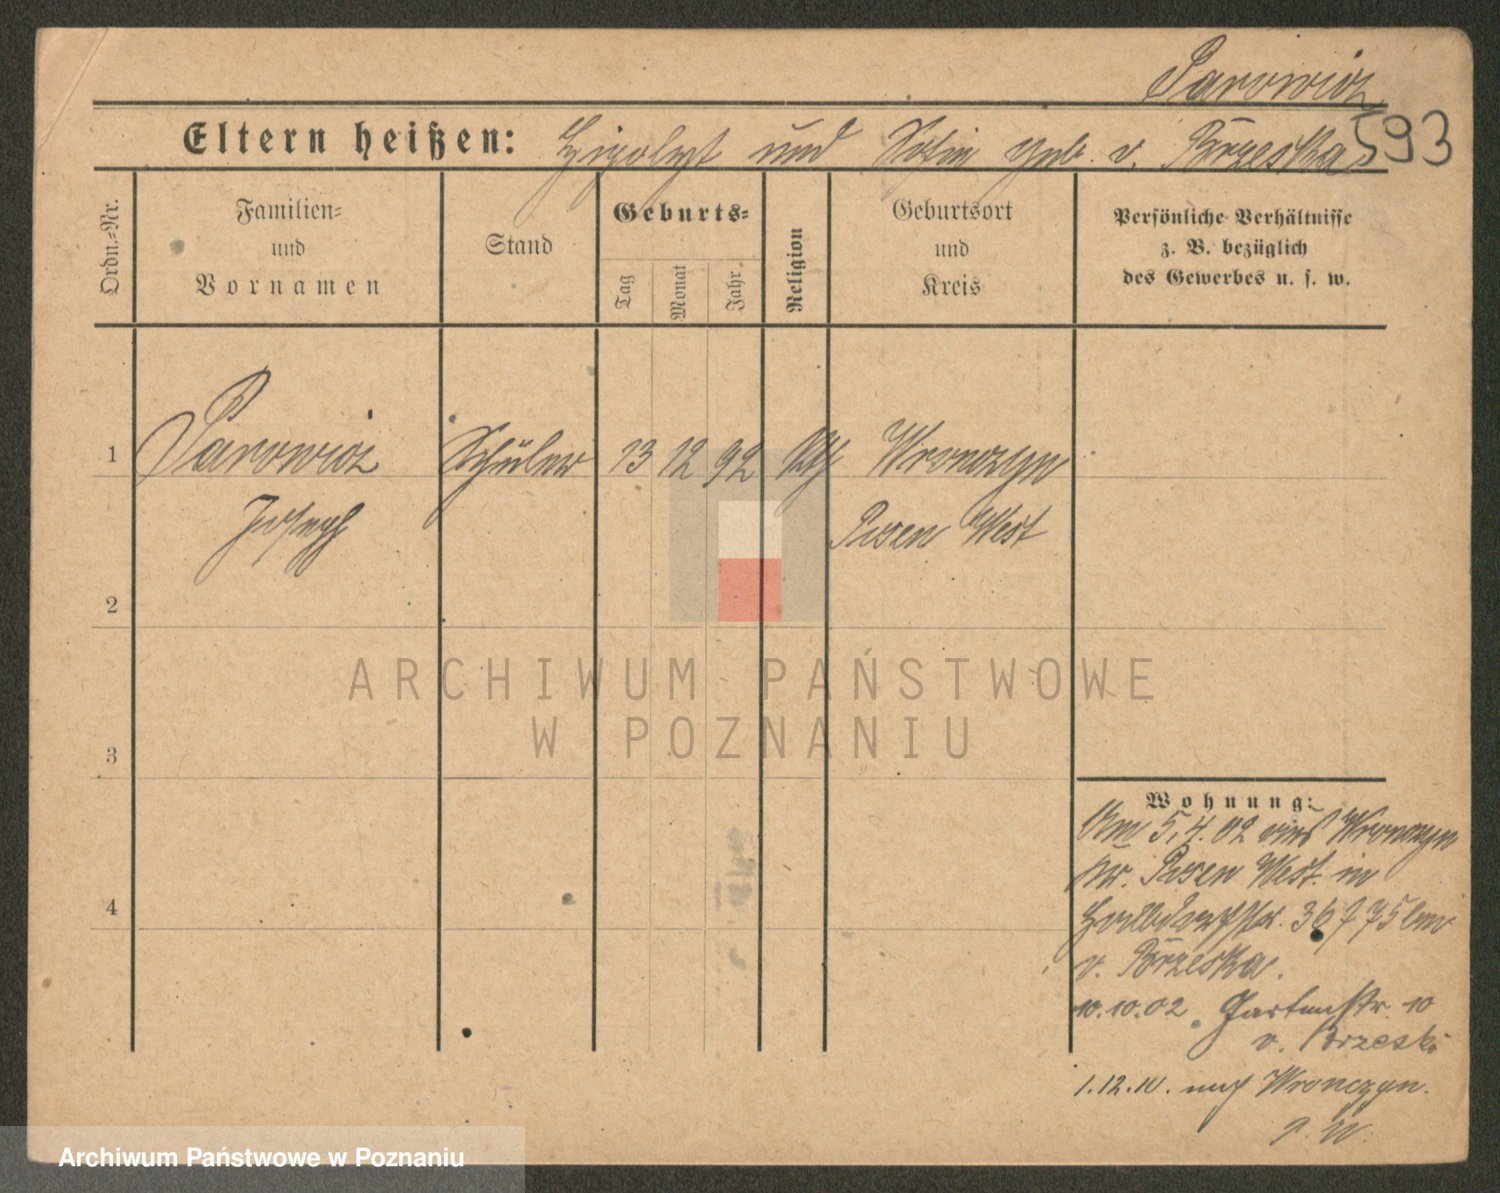 Parowicz
593
Eltern heißen: Hipolyt und Sofie geb. v. Brzeska
Ordn.-Nr.
Familien-
und
Vornamen
Stand
Geburts-
Tag
Monat
Jahr
Religion
Geburtsort
und
Kreis
Persönliche Verhältnisse
z. B. bezüglich
des Gewerbes u. s. w.
1 Parowicz Schüler 13 12 92 Kth Wronczyn
Joseph Posen West
2
3
4
Wohnung:
Am 5.4.02 aus Wronczyn
Kr. Posen West. in
36 bei
v. Brzeska.
10.10.02 Gartenstr. 10
v. Brzeski
1.12.10. nach Wronczyn.
P. W.
ARCHIWUM PAŃSTWOWE
W POZNANIU
Archiwum Państwowe w Poznaniu